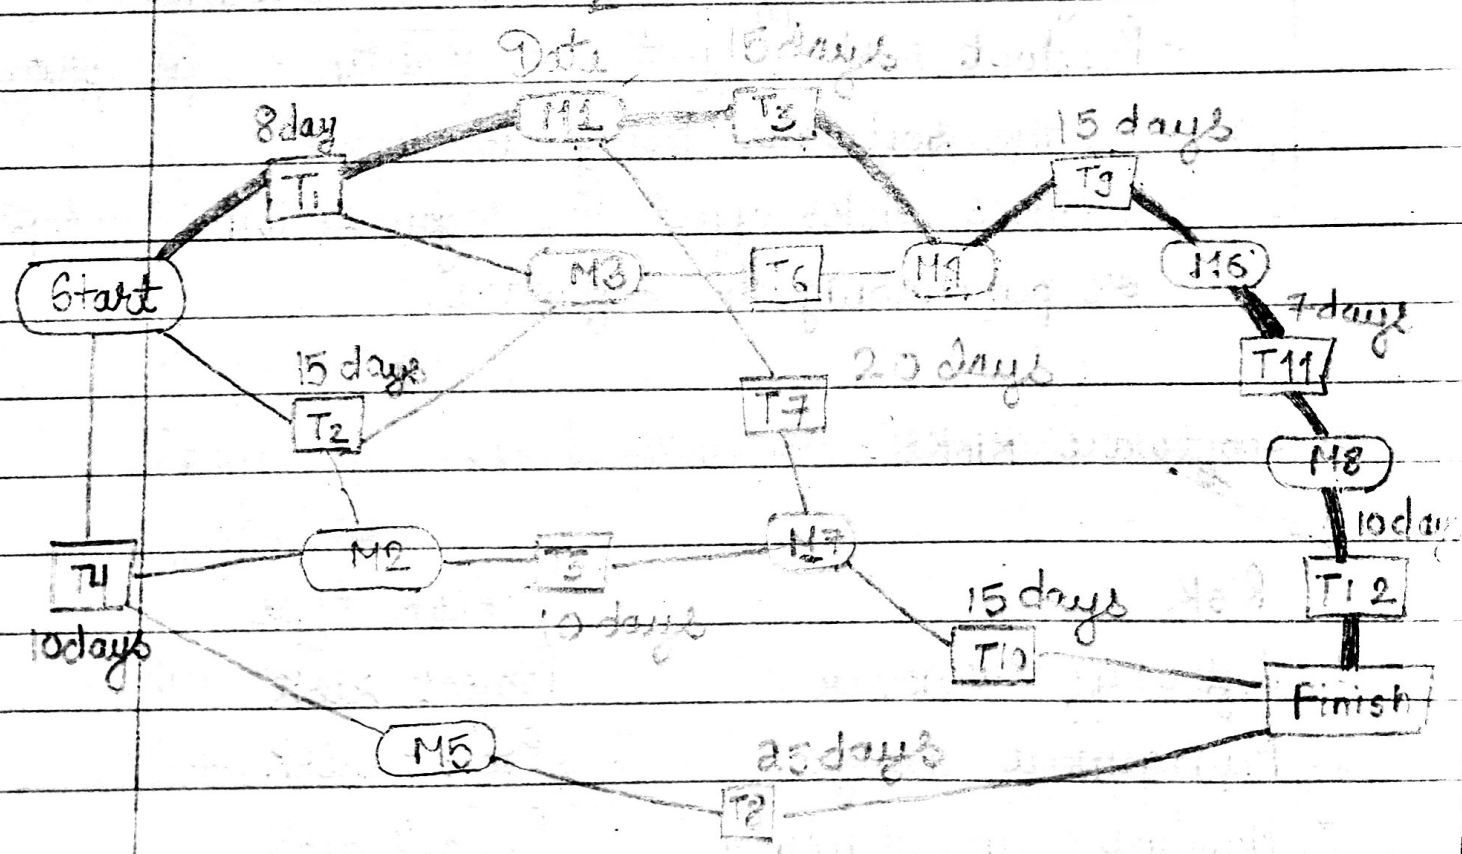 Date 15 days
8 day M1 T3 15 days
T1 T9
Start M3 T6 M4 M6
7 days
15 days 20 days T11
T2 T7
M8
M2 T5 M7 10 day
T4 15 days T12
10 days 10 days T10
Finish
M5 25 days
T8